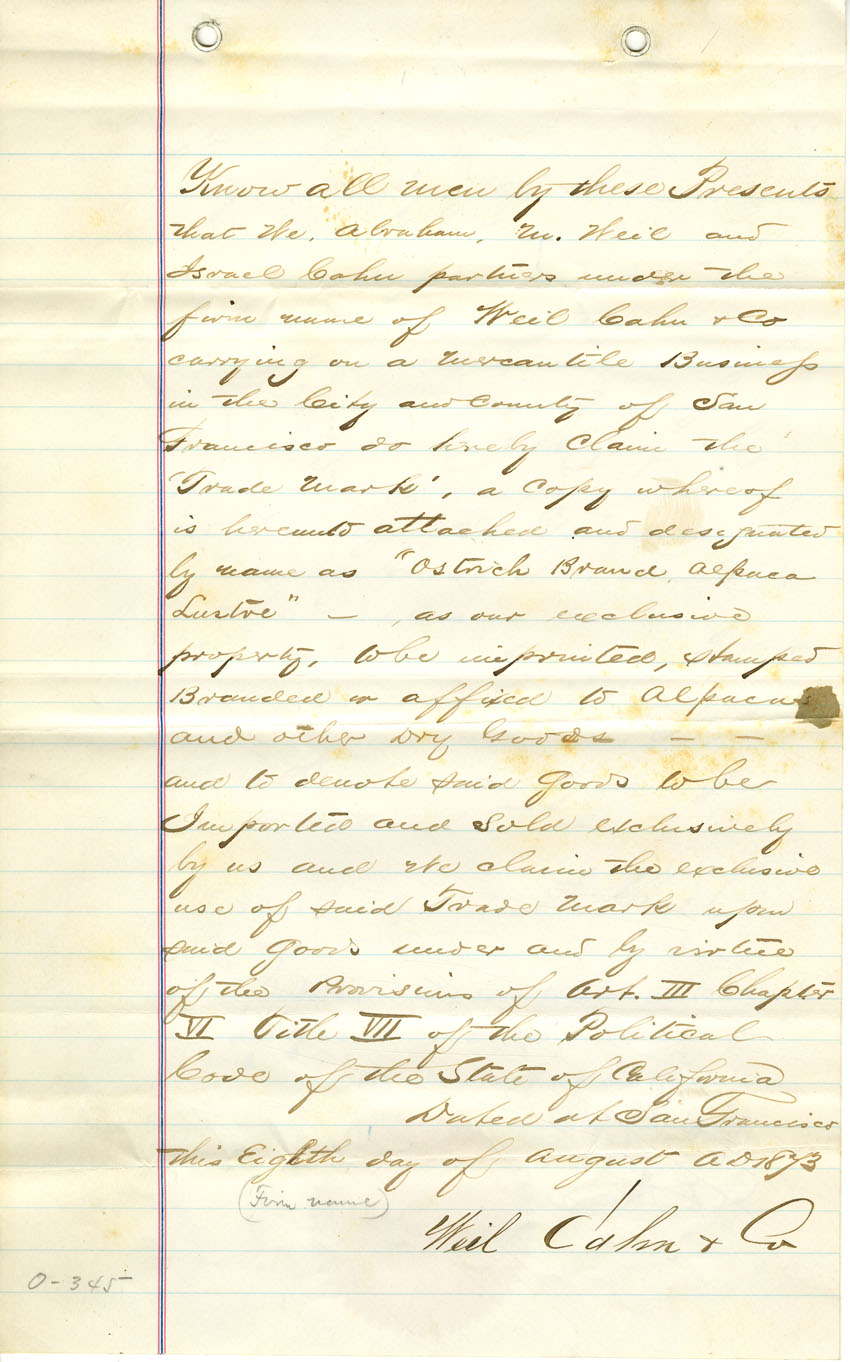 Know all men by these Presents
that We, Abraham, M. Weil and
Israel Cahn partners under the
firm name of Weil Cahn & Co
carrying on a Mercantile Business
in the City and County of San
Francisco do hereby Claim the '
'Trade Mark', a Copy whereof
is hereunto attached and designated
by name as "Ostrich Brand Alpaca
Lustre" — , as our exclusive
property, to be imprinted, stamped
Branded or affixed to Alpacas
and other Dry Goods — —
and to denote said goods to be
Imported and Sold exclusively
by us and We claim the exclusive
use of said Trade Mark upon
said goods under and by virtue
of the Provisions of Art. III Chapter
VI Title VII of the Political
Code of the State of California
Dated at San Francisco
this Eighth day of August AD 1873
(Firm name)
Weil Cahn & Co
O-345